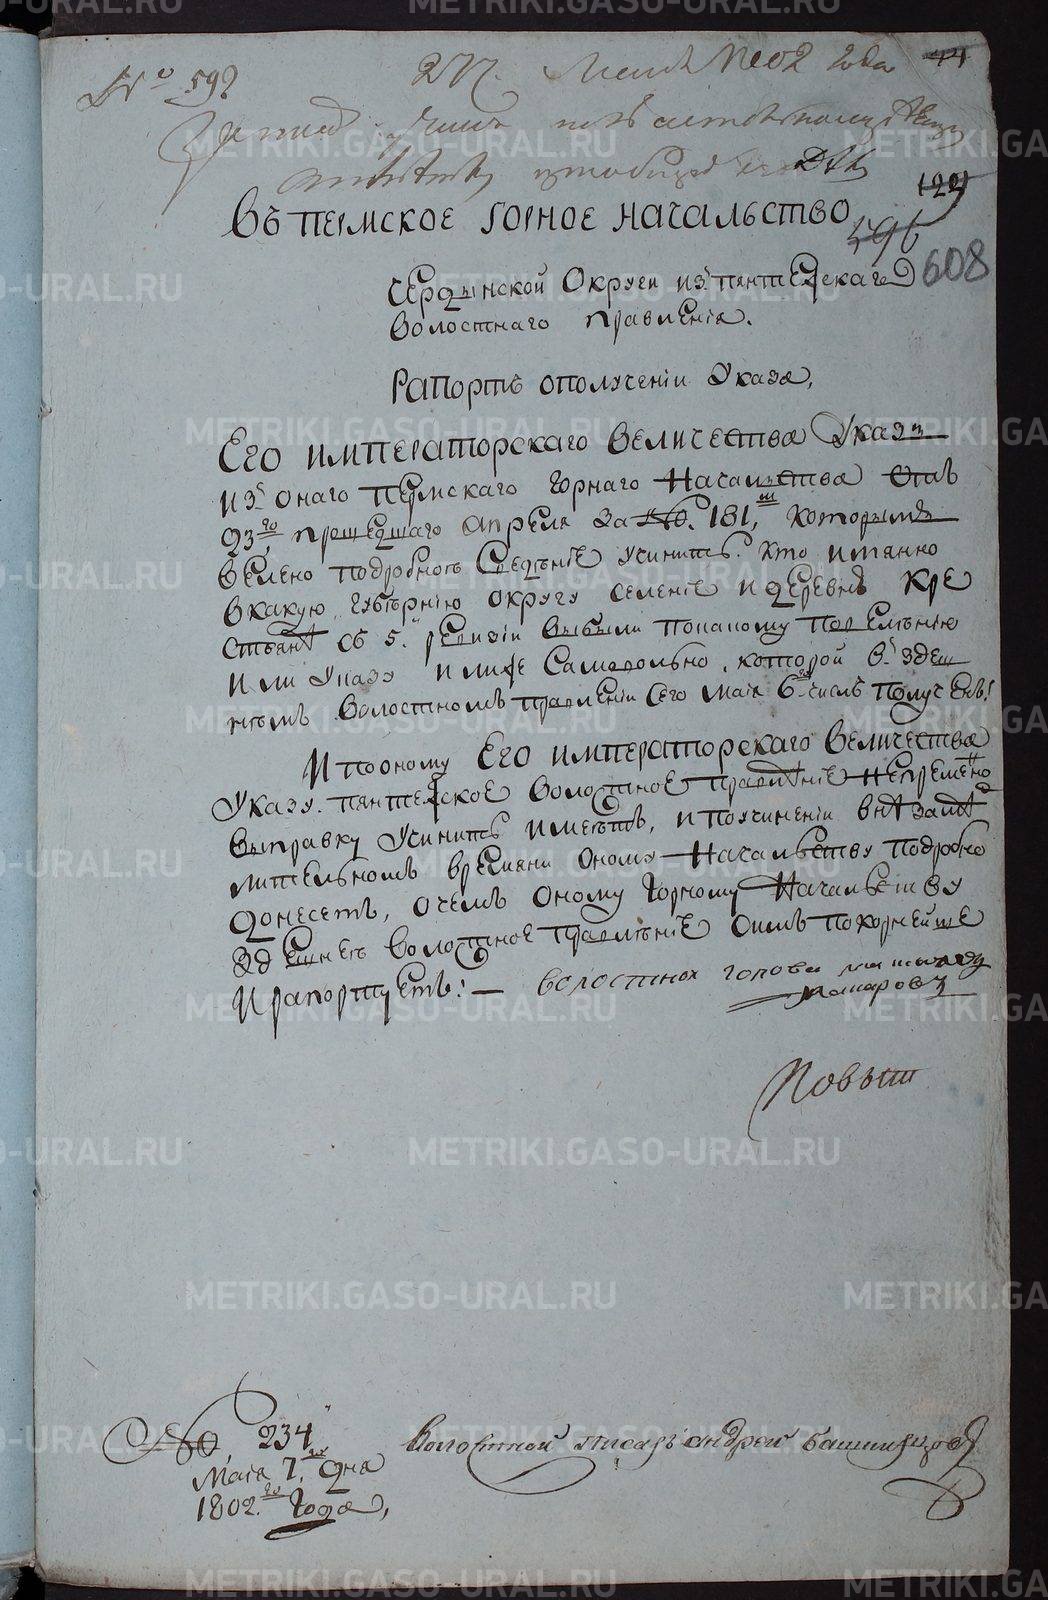 № 592
27. Маия 1802 года
44
ДѢл
129
Въ пермское горное начальство
596
608
Чердынской Округи изъ пянтежскаго
волостнаго правленія.
Рапортъ ополученіи Указа,
Его императорскаго величества Указъ
изъ онаго пермскаго горнаго Начальства отъ
23го, прошедшаго апреля за №. 181,м которымъ
велено подробноѣ сведѣніе учинить. кто имянно
вкакую губѣрнію округу селеніе идеревнѣ кре
стьянѣ съ 5.й ревизіи выбыли покакому повелѣнію
или указу илиже Самовольно, которой въ здеш
нѣмъ Волостномъ правленіи Сего маія 6го числѣ полученъ!
И пооному Его императорскаго величества
Указу. пянтежское волостное правлѣніе непремѣнно
выправку учинить имеетъ, ипоучиненіи внѣ замѣд
лительномъ времяни оному Начальству подробно
донесетъ, очемъ оному горному Начальству
здешнеѣ волостное правлѣніе симъ покорнейше
И рапортуетъ: — волостнои голова
макаровъ
Повыт
№ 234
Маія 7.го дня
1802.го Года,
волостной писарь андрей